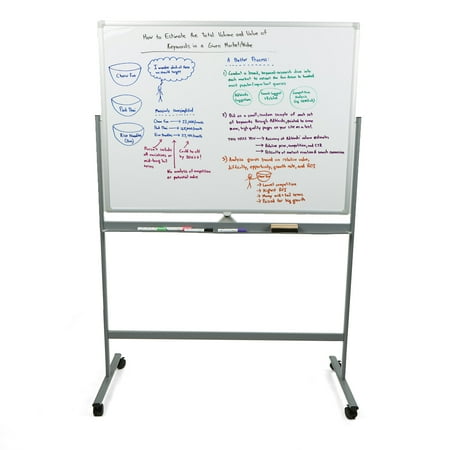 How to Estimate the Total Volume and Value of
Keywords in a Given Market/Niche
Chow Fun
Pad Thai
Rice Noodles
(Chin)
I wonder which of these
we should target
Manually Oversimplified
Chow Fun → 22,200/month
Pad Thai →
Rice Noodles →
Doesn't include
all variations or
mid-long tail
terms
Could be off
by 200%+!
No analysis of competition
or potential value
A Better Process:
1) Conduct a broad, keyword research dive into
each market to extract the few dozen to hundred
most popular/important queries
AdWords
Suggestion
Search Suggest
+ Related
Competitive
Analysis
(eg SEMRush)
2) Bid on a small, random sample of each set
of keywords through AdWords, pointed to some
mmm, high quality pages on your site as a test.
THIS GIVES YOU → Accuracy of AdWords' volume estimates
→ Relative price, competition, and CTR
→ Difficulty of market creation & search conversion
3) Analyze growth based on relative value,
difficulty, opportunity, growth rate, and ROI
→ Lowest competition
→ Highest ROI
→ Many mid + tail terms
→ Poised for big growth